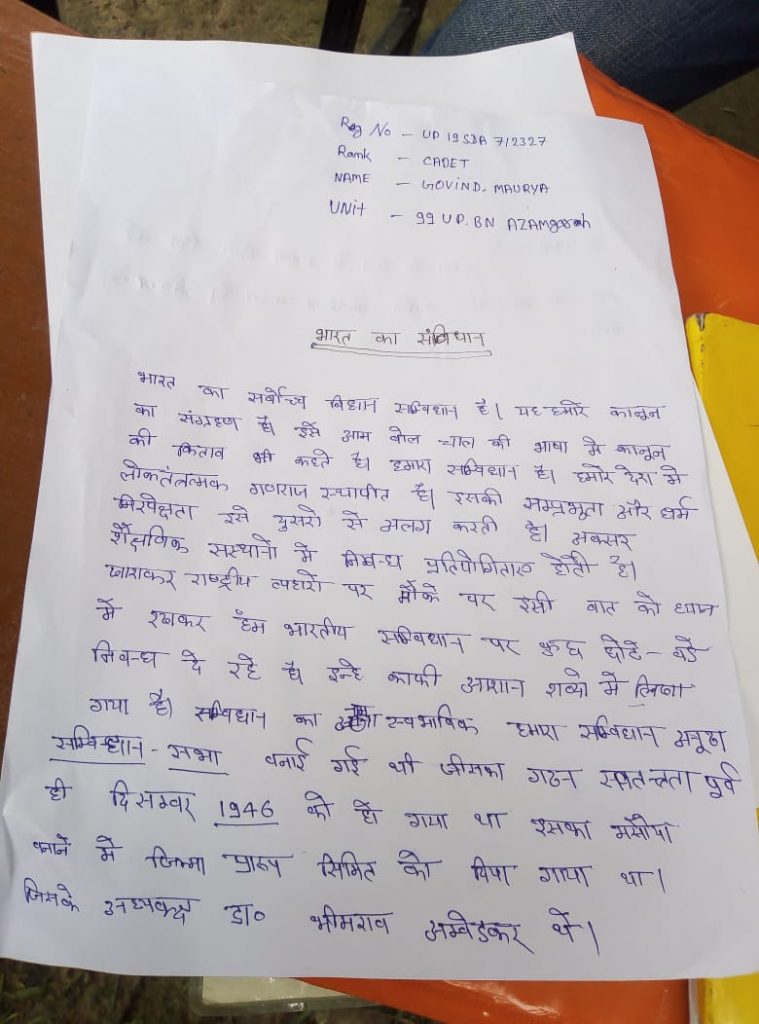 Reg No - UP19SDA 712327
Rank - CADET
NAME - GOVIND. MAURYA
UNit - 99 UP. BN AZAMgarh
भारत का संविधान
भारत का सर्वोच्च विधान सम्विधान है। यह हमारे कानून
का संग्रहण है। इसे आम बोल चाल की भाषा मे कानून
की किताब भी कहते है। हमारा सम्विधान है। हमारे देश मे
लोकतंत्तमक गणराज स्थापीत है। इसकी सम्प्रभूता और धर्म
निरपेक्षता इसे दुसरो से अलग करती है। अक्सर
शैक्षणिक संस्थानो मे निबन्ध प्रतियोगिताए होती है।
खासकर राष्ट्रीय त्यहारो पर मौके पर इसी बात को ध्यान
मे रखकर हम भारतीय सम्विधान पर कुछ छोटे - बडे
निबन्ध दे रहे है इन्हे काफी आशान शब्दो मे लिखा
गया है। सम्विधान का स्वभाविक हमारा सम्विधान अनूठा
सम्विन्धान - सभा बनाई गई थी जीसका गठन स्वतन्त्तता पूर्व
ही दिसम्बर 1946 को हो गया था इसका मसौदा
बनाने मे जिम्मा प्रारूप सिमित को दिया गाया था।
जिसके अध्यक्ष डा० भीमराव अम्वेडकर थे।